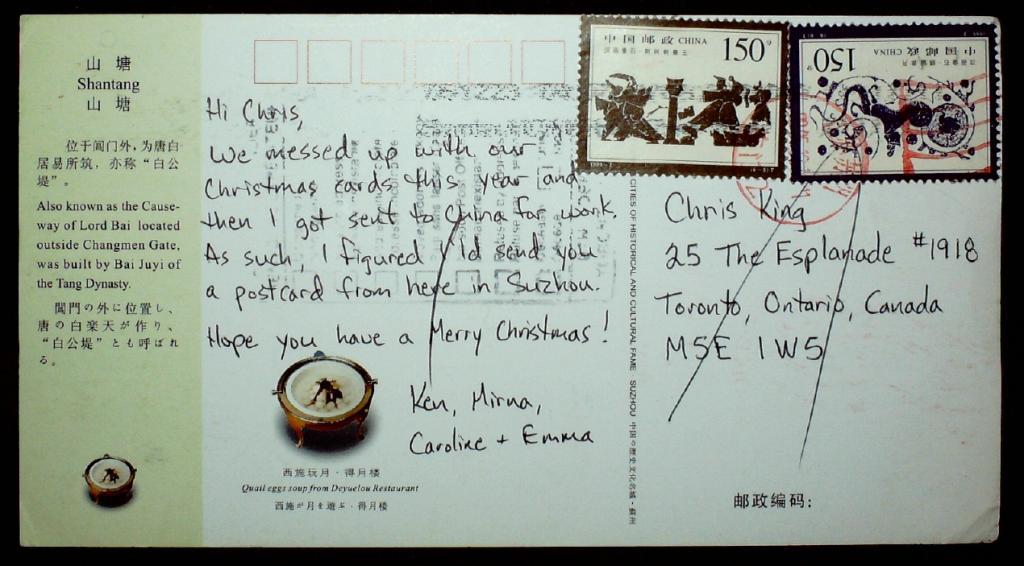 山 塘
Shantang
山 塘
位于阊门外，为唐白
居易所筑，亦称“白公
堤”。
Also known as the Cause-
way of Lord Bai located
outside Changmen Gate,
was built by Bai Juyi of
the Tang Dynasty.
閶門の外に位置し、
唐の白楽天が作り、
“白公堤”とも呼ばれ
る。
Hi Chris,
We messed up with our
Christmas cards this year and
then I got sent to China for work.
As such, I figured I'd send you
a postcard from here in Suzhou.
Hope you have a Merry Christmas!
Ken, Mirna,
Caroline + Emma
西施玩月·得月楼
Quail eggs soup from Deyuelou Restaurant
西施が月を遊ぶ·得月楼
CITIES OF HISTORICAL AND CULTURAL FAME SUZHOU 中国の歴史文化名城·蘇州
中国邮政 CHINA
150
中国邮政
CHINA
150
Chris King
25 The Esplanade #1918
Toronto, Ontario, Canada
M5E 1W5
邮政编码：